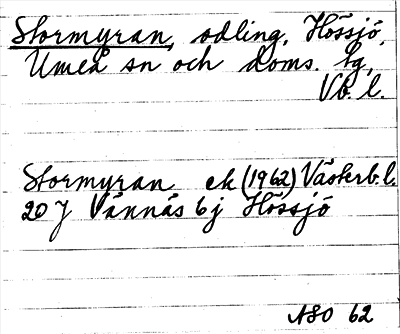 Stormyran, odling, Hössjö,
Umeå sn och doms. tg,
Vb. l.
Stormyran ek (1962) Västerb. l.
20 J Vännäs 6 j Hössjö
ASO 62